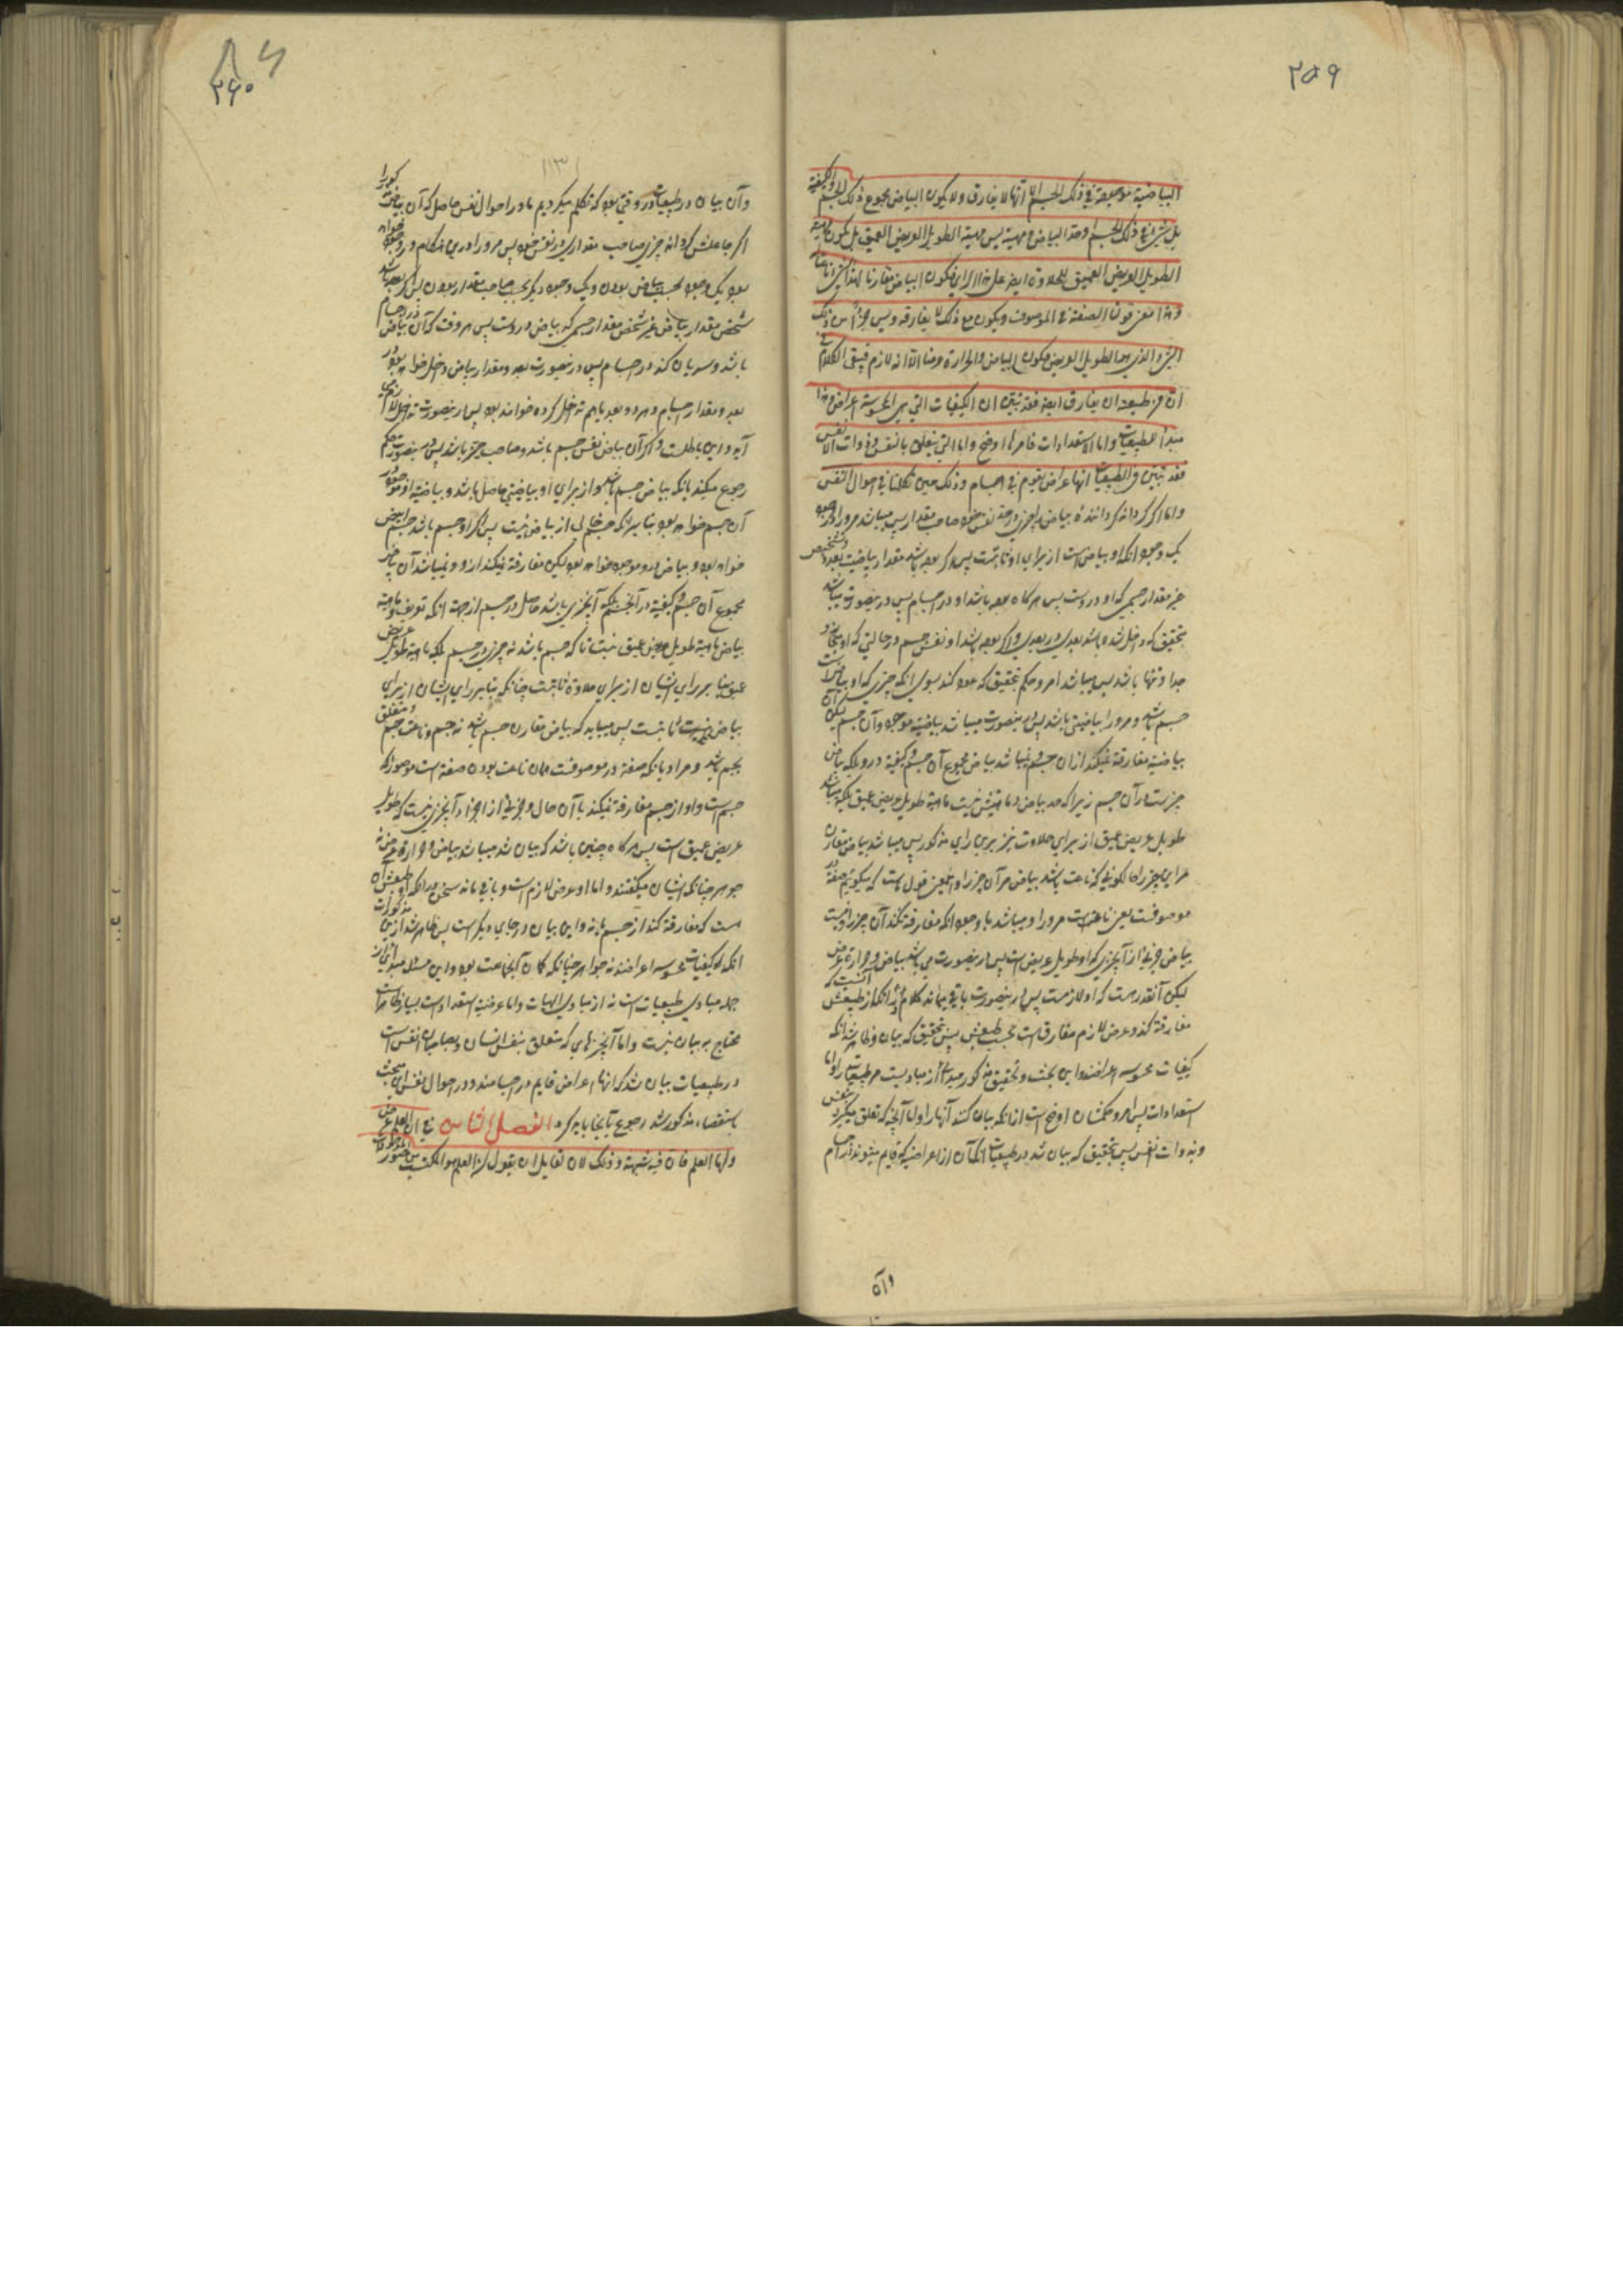 ۲۵۹
البیاضیة موجودة فی ذلک الجسم الا انها لا یفارق ولا یکون البیاض مجموع ذلک الجسم والکیفیة
بل شیئا فی ذلک الجسم اوحد البیاض ومهیته لیس مهیة الطویل العریض العمیق بل یکون مهیة
الطویل العریض العمیق للحلاوة ایضا علی هذا الرای فیکون البیاض مقارنا لهذا الشیء ناعتا
وهذا معنی قولنا الصفة فی الموصوف ویکون مع ذلک لا یفارقه ولیس جزءا من ذلک
الشیء الذی هو الطویل العریض فیکون البیاض والحرارة عرضا الا انه لازم فبقی الکلام فی
ان من طبیعته ان یفارق ایضا فقد تبین ان الکیفیات التی هی المحسوسة اعراض وهذا
مبدأ للطبیعیات واما الاستعدادات فامرها اوضح واما التی یتعلق بالنفس وذوات الانفس
فقد تبین فی الطبیعیات انها اعراض یقوم فی اجسام وذلک حین تکلمنا فی احوال النفس
واما اگر گردانه گرداننده بیاض را چیزی در حد نفس خود صاحب مقدار پس میباشد مرورا دو وجود
یک وجود انکه او بیاض است از برای او ثابتست پس اگر بوده باشد مقدار بیاضیت بعدد
غیر مقدار جسمی که او دروست پس هرگاه بوده باشد او در اجسام پس درینصورت میباشد
بتحقیق که داخل شده باشد بعدی در بعدی و اگر بوده باشد او نفس جسم در حالتی که او
جدا و تنها باشد پس میباشد امر و حکم بتحقیق که عود کند بسوی انکه چیزی که او بیاض است
جسم باشد و مرورا بیاضیتی باشد پس درینصورت میباشد بیاضیة موجود در آن جسم لیکن آن
بیاضیة مفارقة نمیکند از ان جسم و نمیباشد بیاض مجموع آن جسم و کیفیة درو بلکه بیاض
چیزیست در آن جسم زیرا که حد بیاض و ماهیتش نیست ماهیة طویل عریض عمیق بلکه میباشد
طویل عریض عمیق از برای حلاوت نیز بر این رای مذکور پس میباشد بیاض مقارن
مر این چیز را که ناعت باشد بیاض مر آن چیز را و اینمعنی قول ماست که میگوئیم صفة در
موصوفست یعنی ناعتست مرورا و میباشد با وجود انکه مفارقة نکند آن چیز را و نیست
بیاض جزئی از آنچیزی که او طویل عریض است پس درینصورت می باشد بیاض و حرارة عرض
لیکن آنقدر هست که او لازمست پس درینصورت باقی میماند کلام در انکه از طبیعتش آنست که
مفارقة کند و عرض لازم مفارق است بحسب طبیعتش پس بتحقیق که بیان و ظاهر شد انکه
کیفیات محسوسه اعراضند و این بحث و تحقیق مذکور مبدأ از مبادیست مر طبیعیات را و اما
استعدادات پس امر و حکمشان اوضح است از انکه بیان کنند آنها را و اما آنچه که تعلق میگیرد بنفس
و بذوات نفس پس بتحقیق که بیان شد در طبیعیات انکه آن از اعراضیست که قایم میشوند در اجسام
وآن
۲۶۰
وآن بیان در طبیعیات در وقتی بود که تکلم میکردیم ما در احوال نفس حاصل که آن بیاض مذکور را
اگر جاعلش گردانه چیزی صاحب مقداری در نفس خود پس مرورا درین هنگام دو وجود خواهد
بود یک وجود بحسب بیاض بودن و یک وجود دیگر بحسب صاحب مقدار بودن پس اگر بوده باشد
شخص مقدار بیاض غیر شخص مقدار جسمی که بیاض دروست پس هر وقت که آن بیاض در اجسام
باشد و سریان کند در اجسام پس درینصورت بعد و مقدار بیاض داخل خواهد بود در
بعد و مقدار اجسام و هر دو بعد باهم تداخل کرده خواهند بود پس درینصورت تداخل لازم می
آید و این باطلست و اگر آن بیاض نفس جسم باشد و صاحب حیز باشد پس درینصورت حکم
رجوع میکند بانکه بیاض جسم باشد و از برای او بیاضیتی حاصل باشد و بیاضیة او موجود در
آن جسم خواهد بود بنا بر انکه جسم خالی از بیاض نیست پس اگر او جسم باشد جسم ابیض
خواهد بود و بیاض درو موجود خواهد بود لیکن مفارقة نمیکند از و و نمیباشد آن بیاض
مجموع آن جسم و کیفیة در آنجسم بلکه آنچیزی باشد حاصل در جسم از جهت انکه تعریف و ماهیة
بیاض ماهیة طویل عریض عمیق نیست تا که جسم باشد نه چیزی در جسم بلکه ماهیة طویل عریض
عمیق بنا بر رای ایشان از برای حلاوة ثابتست چنانکه بنا بر رای ایشان از برای
بیاض نیز ثابتست پس میباید که بیاض مقارن جسم باشد نه جسم و ناعت جسم و متعلق
بجسم باشد و مراد بانکه صفة در موصوفست همان ناعت بودن صفة است موصوف را که
جسم است و او از جسم مفارقة نمیکند با آن حال و جزئی از اجزاء آنچیزی نیست که طویل
عریض عمیق است پس هرگاه چنین باشد که بیان شد میباشد بیاض و حرارة عرض نه
جوهر چنانکه ایشان میگفتند و اما او عرض لازم است و باقی ماند سخن در انکه او طبیعتش آن
است که مفارقة کند از جسم یا نه و این بیان در جای دیگر است پس ظاهر شد ازین مذکورات
انکه کیفیات محسوسه اعراضند نه جواهر چنانکه گمان آنجماعت بود و این مسئله مبدأی از
جمله مبادی طبیعیات است نه از مبادی الهیات و اما عرضیة استعدادات بسیار ظاهر است
محتاج به بیان نیست و اما آنچیزهای که متعلق بنفس انسان و بصاحبان نفس است
در طبیعیات بیان شد که انها اعراض قایم در اجسامند و در احوال نفس این مبحث
باستقصاء مذکور شد رجوع بآنجا باید کرد الفصل الثامن فی ان العلم عرض
واما العلم فان فیه شبهة وذلک لان لقایل ان یقول ان العلم هو المکتسب من صور الموجودات